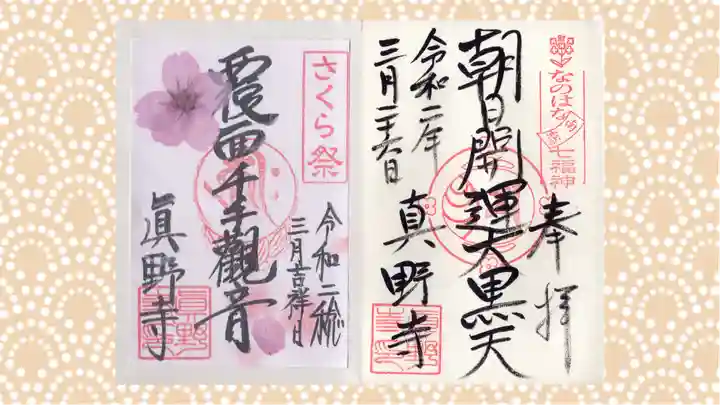 さくら祭
覆面千手觀音
令和二稔
三月吉祥日
眞野寺
なのはな
七福神
奉拝
朝日開運大黒天
令和二年
三月二十六日
真野寺